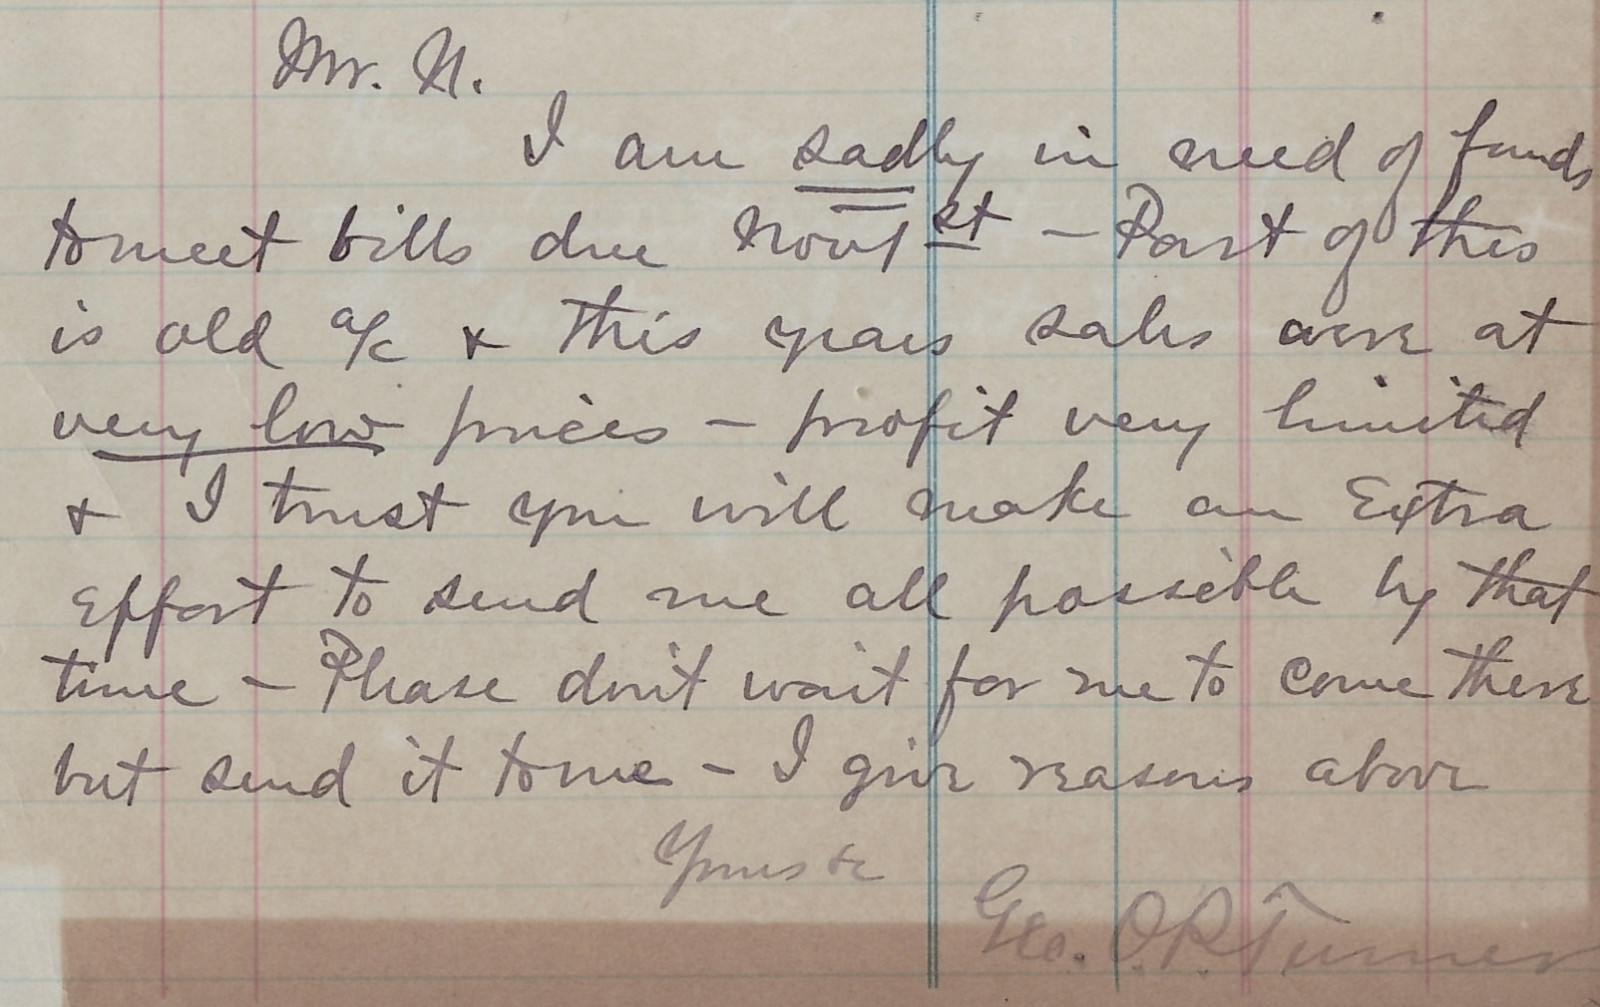 Mr. N.
I am sadly in need of funds
to meet bills due Nov 1st - Part of this
is old a/c & this years sales were at
very low prices - profit very limited
& I trust you will make an Extra
Effort to send me all possible by that
time - Please don't wait for me to come there
but send it to me - I give reasons above
Yours &c
Geo. O.R. Turner